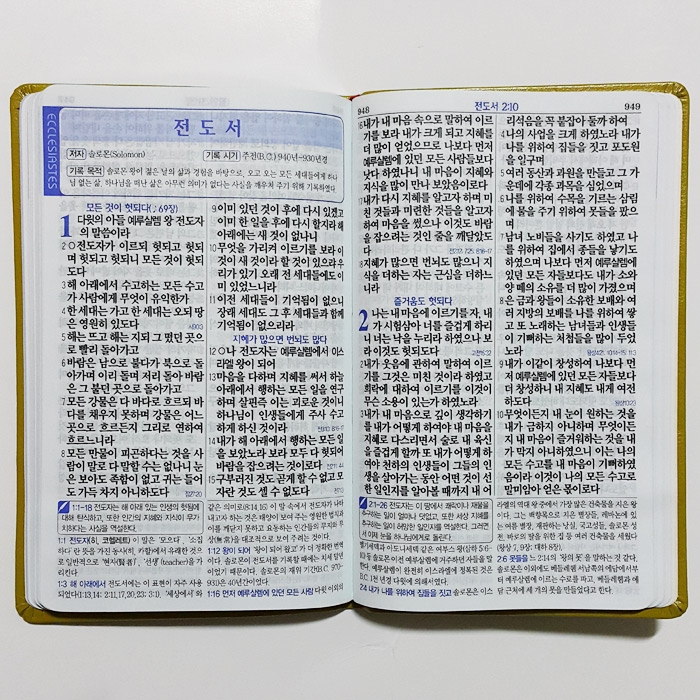 ECCLESIASTES
전도서
저자 솔로몬(Solomon)
기록 시기 주전(B.C.) 940년~930년경
기록 목적 솔로몬 왕이 젊은 날의 삶과 경험을 바탕으로, 오고 오는 모든 세대들에게 하나
님 없는 삶, 하나님을 떠난 삶은 아무런 의미가 없다는 사실을 깨우쳐 주기 위해 기록하였다
모든 것이 헛되다(♪ 69장)
1 다윗의 아들 예루살렘 왕 전도자
의 말씀이라
2 ○전도자가 이르되 헛되고 헛되
며 헛되고 헛되니 모든 것이 헛되
도다
3 해 아래에서 수고하는 모든 수고
가 사람에게 무엇이 유익한가
4 한 세대는 가고 한 세대는 오되 땅
은 영원히 있도다
5 해는 뜨고 해는 지되 그 떴던 곳으
로 빨리 돌아가고
6 바람은 남으로 불다가 북으로 돌
아가며 이리 돌며 저리 돌아 바람
은 그 불던 곳으로 돌아가고
7 모든 강물은 다 바다로 흐르되 바
다를 채우지 못하며 강물은 어느
곳으로 흐르든지 그리로 연하여
흐르느니라
8 모든 만물이 피곤하다는 것을 사
람이 말로 다 말할 수는 없나니 눈
은 보아도 족함이 없고 귀는 들어
도 가득 차지 아니하도다
9 이미 있던 것이 후에 다시 있겠고
이미 한 일을 후에 다시 할지라 해
아래에는 새 것이 없나니
10 무엇을 가리켜 이르기를 보라 이
것이 새 것이라 할 것이 있으랴 우
리가 있기 오래 전 세대들에도 이
미 있었느니라
11 이전 세대들이 기억됨이 없으니
장래 세대도 그 후 세대들과 함께
기억됨이 없으리라
지혜가 많으면 번뇌도 많다
12 ○나 전도자는 예루살렘에서 이스
라엘 왕이 되어
13 마음을 다하며 지혜를 써서 하늘
아래에서 행하는 모든 일을 연구
하며 살핀즉 이는 괴로운 것이니
하나님이 인생들에게 주사 수고
하게 하신 것이라
14 내가 해 아래에서 행하는 모든 일
을 보았노라 보라 모두 다 헛되어
바람을 잡으려는 것이로다
15 구부러진 것도 곧게 할 수 없고 모
자란 것도 셀 수 없도다
1:1-18 전도자는 해 아래 있는 인생의 헛됨에
대해 탄식하고, 또한 인간의 지혜와 지식이 무가
치하다는 사실을 역설한다.
1:1 전도자(히, 코헬레트) 이 말은 '모으다', '소집
하다'란 뜻을 가진 동사(히, 카할)에서 유래한 것으
로 일반적으로 '현자(賢者)', '선생(teacher)'을 가
리킨다.
1:3 해 아래에서 전도서에는 이 표현이 자주 사용
되었다(1:13,14; 2:11,17,20,23; 3:1).
1:12 왕이 되어
1:16 먼저 예루살렘에 있던 모든 사람
948
전도서 2:10
949
16 내가 내 마음 속으로 말하여 이르
기를 보라 내가 크게 되고 지혜를
더 많이 얻었으므로 나보다 먼저
예루살렘에 있던 모든 사람들보다
낫다 하였나니 내 마음이 지혜와
지식을 많이 만나 보았음이로다
17 내가 다시 지혜를 알고자 하며 미
친 것들과 미련한 것들을 알고자
하여 마음을 썼으나 이것도 바람
을 잡으려는 것인 줄을 깨달았도
다
18 지혜가 많으면 번뇌도 많으니 지
식을 더하는 자는 근심을 더하느
니라
즐거움도 헛되다
2 나는 내 마음에 이르기를 자, 내
가 시험삼아 너를 즐겁게 하리
니 너는 낙을 누리라 하였으나 보
라 이것도 헛되도다
2 내가 웃음에 관하여 말하여 이르
기를 그것은 미친 것이라 하였고
희락에 대하여 이르기를 이것이
무슨 소용이 있는가 하였노라
3 내가 내 마음으로 깊이 생각하기
를 내가 어떻게 하여야 내 마음을
지혜로 다스리면서 술로 내 육신
을 즐겁게 할까 또 내가 어떻게 하
여야 천하의 인생들이 그들의 인
생을 살아가는 동안 어떤 것이 선
한 일인지를 알아볼 때까지 내 어
리석음을 꼭 붙잡아 둘까 하여
4 나의 사업을 크게 하였노라 내가
나를 위하여 집들을 짓고 포도원
을 일구며
5 여러 동산과 과원을 만들고 그 가
운데에 각종 과목을 심었으며
6 나를 위하여 수목을 기르는 삼림
에 물을 주기 위하여 못들을 팠으
며
7 남녀 노비들을 사기도 하였고 나
를 위하여 집에서 종들을 낳기도
하였으며 나보다 먼저 예루살렘에
있던 모든 자들보다도 내가 소와
양 떼의 소유를 더 많이 가졌으며
8 은 금과 왕들이 소유한 보배와 여
러 지방의 보배를 나를 위하여 쌓
고 또 노래하는 남녀들과 인생들
이 기뻐하는 처첩들을 많이 두었
노라
9 내가 이같이 창성하여 나보다 먼
저 예루살렘에 있던 모든 자들보다
더 창성하니 내 지혜도 내게 여전
하도다
10 무엇이든지 내 눈이 원하는 것을
내가 금하지 아니하며 무엇이든
지 내 마음이 즐거워하는 것을 내
가 막지 아니하였으니 이는 나의
모든 수고를 내 마음이 기뻐하였
음이라 이것이 나의 모든 수고로
말미암아 얻은 몫이로다
2:1-26 전도자는 이 땅에서 쾌락이나 재물을
추구하는 일이 얼마나 덧없고, 또한 세상 지혜를
구하는 일이 허망한 일인지를 역설한다. 그러면
서 이제 눈을 하나님에게로 돌린다.
2:4 내가 나를 위하여 집들을 짓고 솔로몬은 이스
2:6 못들을